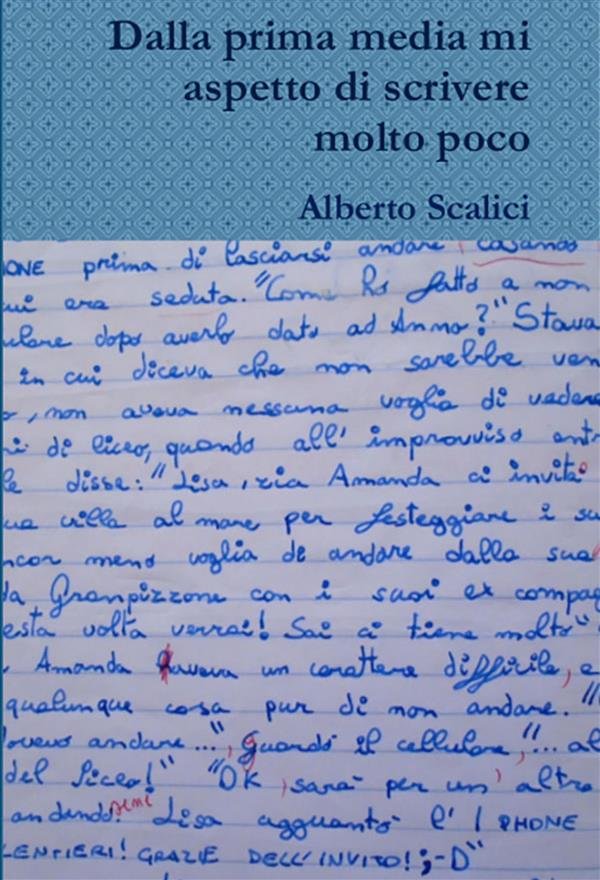 Dalla prima media mi
aspetto di scrivere
molto poco
Alberto Scalici
IONE prima di lasciarsi andare casando
ui era seduta. "Come ho fatto a non
ulare dopo averlo dato ad Anna?" Stava
in cui diceva che non sarebbe ven
o, non aveva nessuna voglia di vedere
ni di liceo, quando all'improvviso entr
le disse: "Lisa, zia Amanda ci invita
ua villa al mare per festeggiare i su
ncor meno voglia de andare dalla sua
da Granpizzone con i suoi ex compag
esta volta verrai! Sai ci tiene molto"
. Amanda aveva un carattere difficile, e
qualunque cosa pur di non andare. "
dovevo andare...", guardò il cellulare, "... al
del liceo!" "OK, sarà per un'altra
andando. Lisa agguantò l'I PHONE
LENTIERI! GRAZIE DELL'INVITO! ;-D"